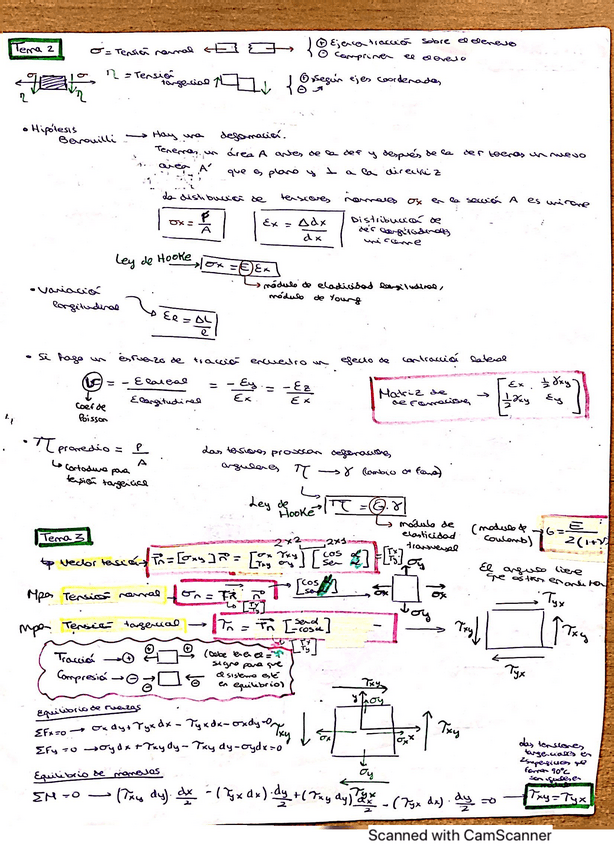 Tema 2
σ = Tensión normal
⊕ Ejercen tracción sobre el elemento
⊖ Comprimen el elemento
η = Tensión tangencial
⊕ según ejes coordenados
⊖
• Hipótesis Bernouilli → Hay una deformación.
Tenemos un área A antes de la def y después de la def tienes un nuevo
área A' que es plano y ⊥ a la directriz
La distribución de tensiones normales σx en la sección A es uniforme
σx = P/A
εx = Δdx/dx
Distribución de def longitudinales uniforme
Ley de Hooke → σx = E εx
→ módulo de elasticidad longitudinal,
módulo de Young
• Variación longitudinal
εl = ΔL/l
• Si hago un esfuerzo de tracción encuentro un efecto de contracción lateral
= -ε lateral / ε longitudinal = -εy/εx = -εz/εx
Coef de Poisson
Matriz de deformaciones → [εx ½γxy; ½γxy εy]
• τ promedio = P/A
↳ cortadura para tensión tangencial
Las tensiones provocan deformaciones
angulares τ → γ (cambio de forma)
Ley de Hooke → τ = G·γ
→ módulo de elasticidad transversal
(módulo de Coulomb) → G = E/2(1+ν)
Tema 3
2x2 2x1
Vector tensión →
Tn = [σxy] n = [σx τxy; τxy σy] [cos; sen α] = [Tx; Ty]
Mpa Tensión normal → σn = Tn n
[cos; sen]
[Tx; Ty]
Mpa Tensión tangencial → τn = Tn [sen α; cos α]
[Tx; Ty]
σx σx
σy
σy
El ángulo tiene
τyx
τxy τxy
τyx
Tracción → ⊕
Compresión → ⊖
signo para que
el sistema esté
en equilibrio)
Equilibrio de fuerzas
ΣFx=0 → σx dy + τyx dx - τyx dx - σx dy = 0
ΣFy=0 → σy dx + τxy dy - τxy dy - σy dx = 0
τxy
y σy
σx σx x
τxy τxy
σy
τyx
Las tensiones
tangenciales en
Equilibrio de momentos
ΣM = 0 → (τxy dy)·dx/2 - (τyx dx)·dy/2 + (τxy dy) dx/2 - (τyx dx)·dy/2 = 0 → τxy = τyx
Scanned with CamScanner